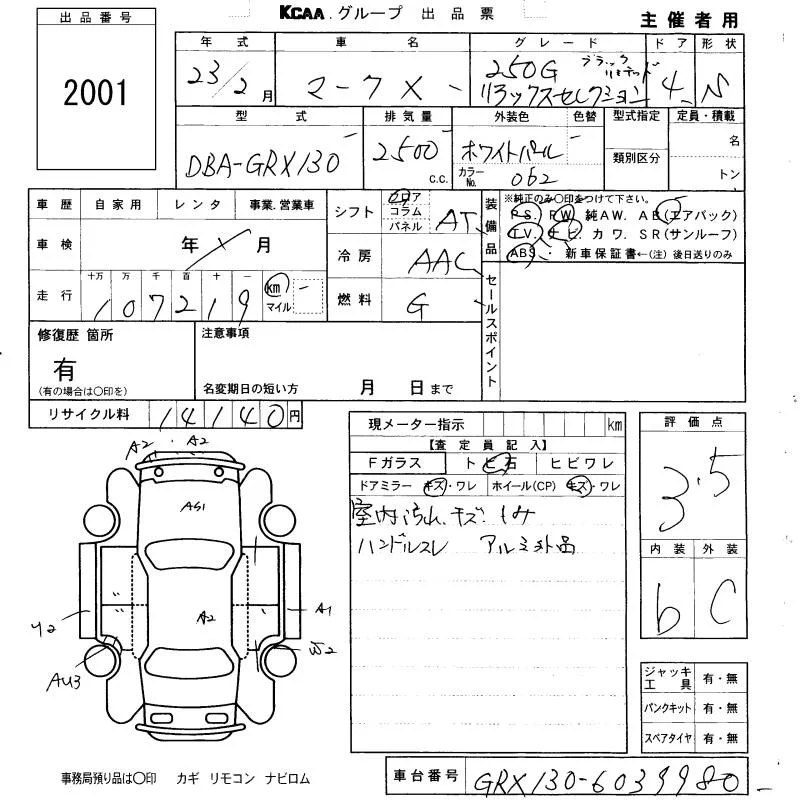 KCAA.グループ 出品票
主催者用
出品番号
2001
年式 車名 グレード ドア 形状
23/2月 マークX 250G ブラックリミテッド
リラックスセレクション 4 S
型式 排気量 外装色 色替 型式指定 定員・積載
DBA-GRX130 2500 c.c. ホワイトパール
カラーNo. 062
類別区分 名
トン
車歴 自家用 レンタ 事業.営業車
シフト フロア コラム パネル AT
装備品 ※純正のみ〇印をつけて下さい。
P.S. P.W. 純AW. AB(エアバック)
T.V. ナビ. カワ. SR(サンルーフ)
ABS. 新車保証書←(注)後日送りのみ
車検 年 月
冷房 AAC
走行 十万 万 千 百 十 一
107219 km マイル
燃料 G
セールスポイント
修復歴 箇所
有
(有の場合は〇印を)
注意事項
名変期日の短い方 月 日まで
リサイクル料 14140円
現メーター指示 km
【査定員記入】
Fガラス トビ石 ヒビワレ
ドアミラー キズ・ワレ ホイール(CP) キズ・ワレ
室内汚れ.キズ.
ハンドルスレ アルミ外品
評価点
3.5
内装 外装
b C
A2 A2
AS1
A2
A1
Y2
W2
AU3
ジャッキ工具 有・無
パンクキット 有・無
スペアタイヤ 有・無
事務局預り品は〇印 カギ リモコン ナビロム
車台番号 GRX130-6039980